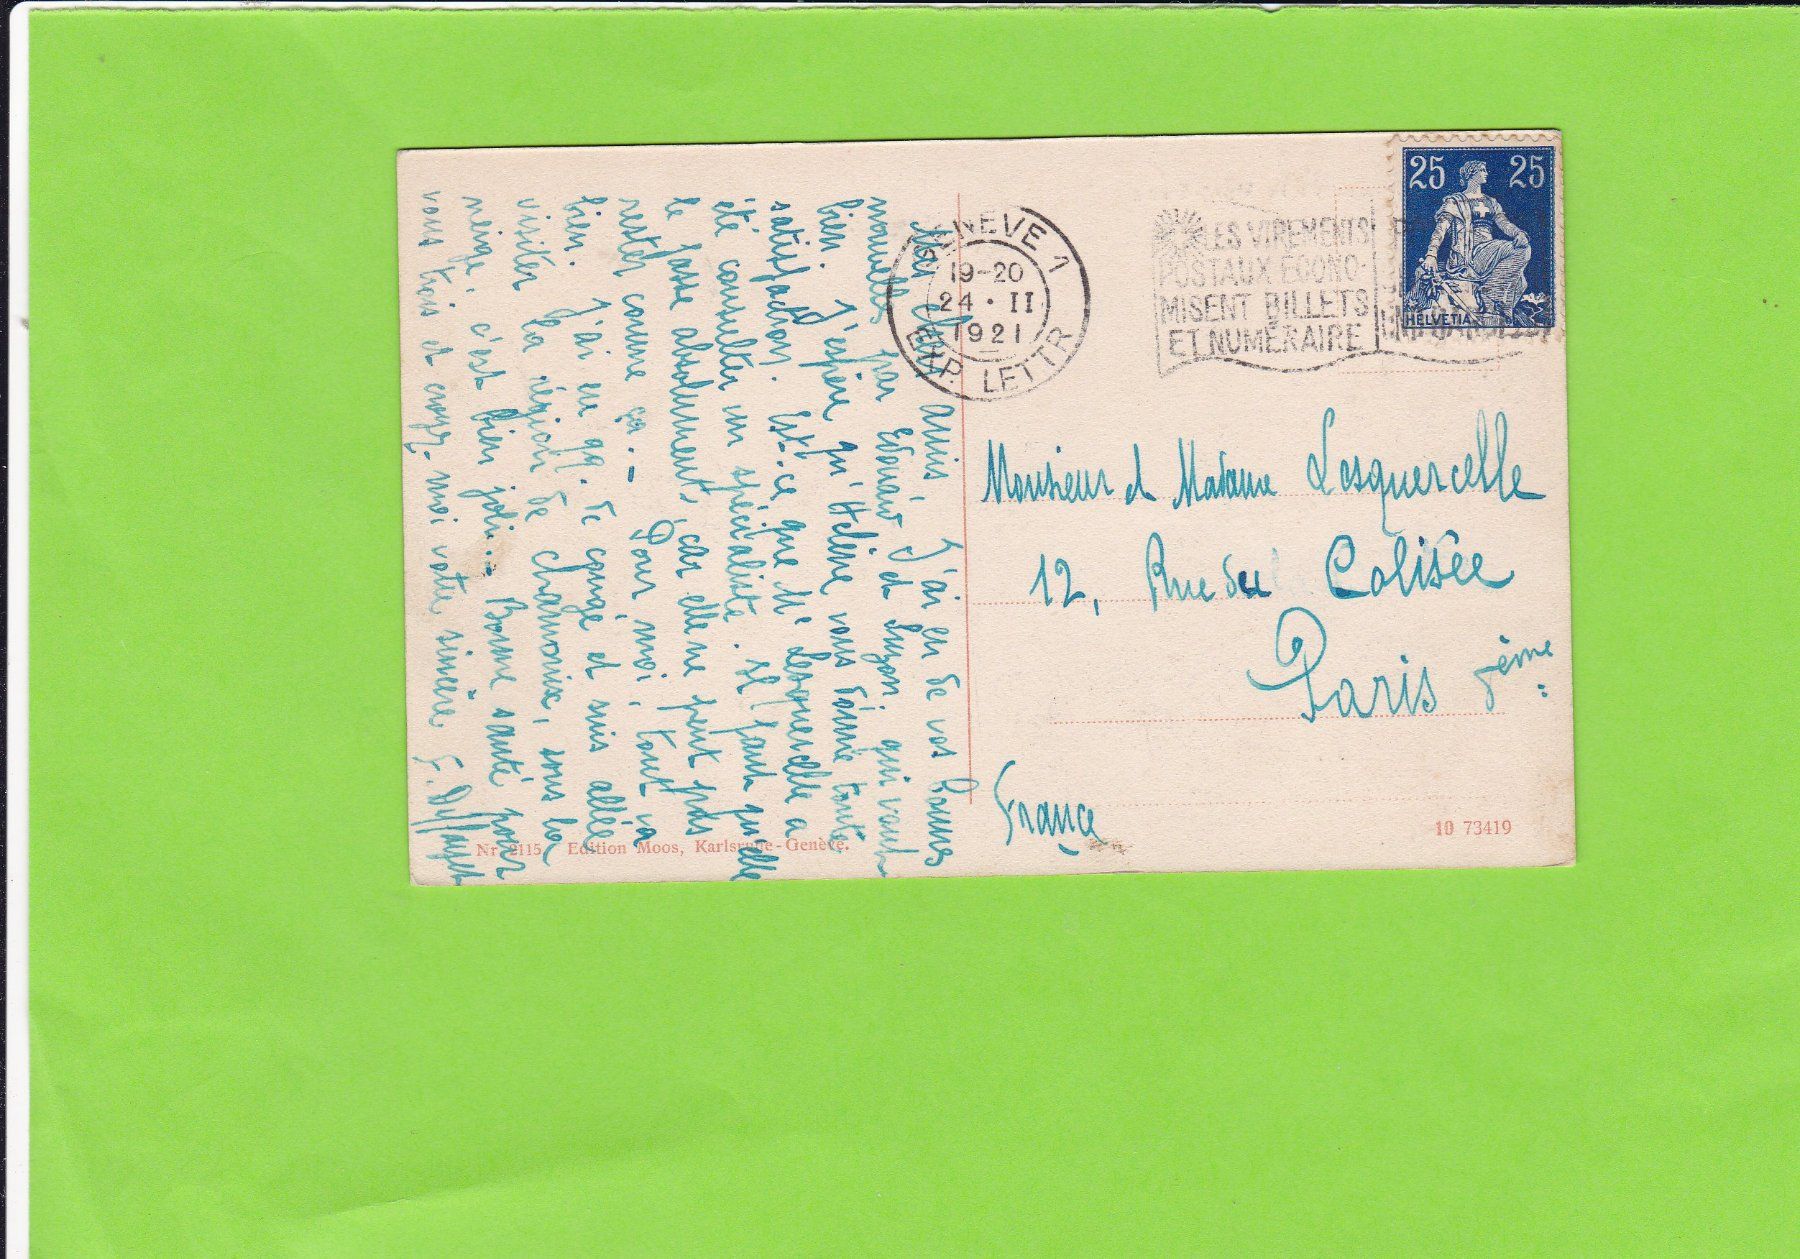 Mes chers amis, J'ai eu de vos bonnes
nouvelles par Edouard et Suzon, qui vont
bien. J'espère qu'Hélène vous donne toute
satisfaction. Est-ce que Me Lesquercelle a
été consulter un spécialiste. Il faut qu'elle
le fasse absolument, car elle ne peut pas
rester comme ça. - Pour moi, tout va
bien. J'ai eu qq. de congé et suis allée
visiter la région de Chamonix, sous la
neige, c'est bien joli. - Bonne santé pour
vous trois et croyez-moi votre sincère F.
GENÈVE 1
19-20
24 · II
1921
EXP. LETTR
LES VIREMENTS
POSTAUX ÉCONO-
MISENT BILLETS
ET NUMÉRAIRE
25 25
HELVETIA
Monsieur et Madame Lesquercelle
12, Rue du Colisée
Paris 8ème
France
Nr. 2115 Edition Moos, Karlsruhe-Genève.
10 73419